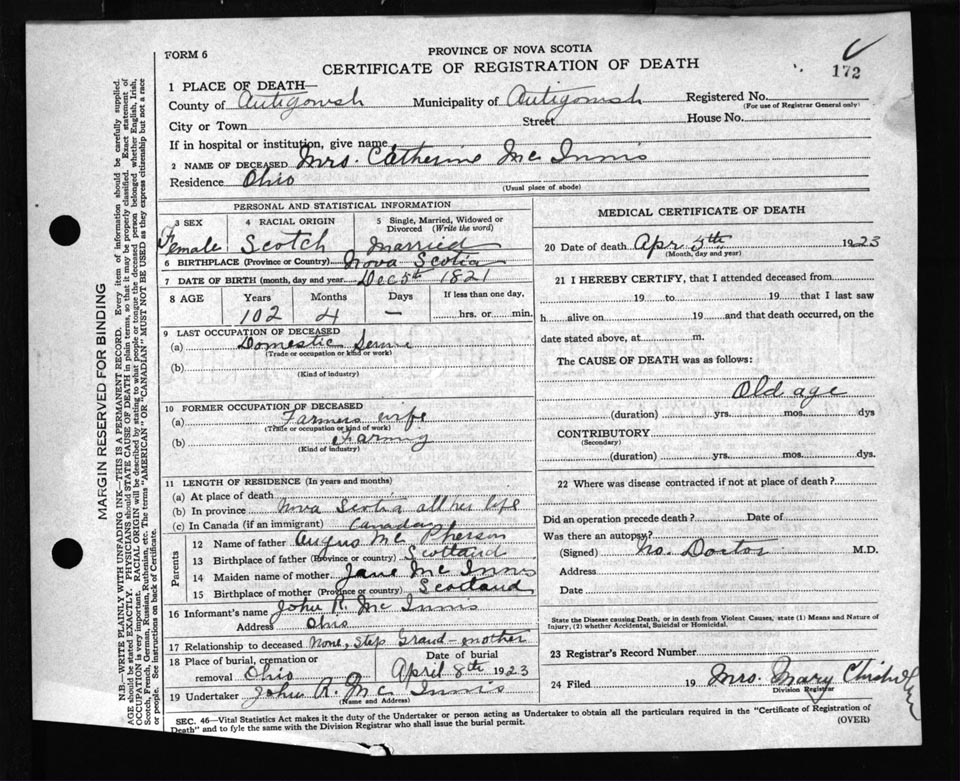 FORM 6
PROVINCE OF NOVA SCOTIA
CERTIFICATE OF REGISTRATION OF DEATH
172
1 PLACE OF DEATH—
County of Antigonish Municipality of Antigonish Registered No.
(For use of Registrar General only)
City or Town Street House No.
If in hospital or institution, give name
2 NAME OF DECEASED Mrs. Catherine Mc Innis
Residence Ohio
(Usual place of abode)
PERSONAL AND STATISTICAL INFORMATION
3 SEX 4 RACIAL ORIGIN 5 Single, Married, Widowed or Divorced (Write the word)
Female Scotch Married
6 BIRTHPLACE (Province or Country) Nova Scotia
7 DATE OF BIRTH (month, day and year) Dec 5th 1821
8 AGE Years Months Days If less than one day,
102 4 — hrs. or min.
9 LAST OCCUPATION OF DECEASED
(a) Domestic
(Trade or occupation or kind or work)
(b)
(Kind of industry)
10 FORMER OCCUPATION OF DECEASED
(a) Farmers wife
(Trade or occupation or kind of work)
(b) Farming
(Kind of industry)
11 LENGTH OF RESIDENCE (In years and months)
(a) At place of death
(b) In province Nova Scotia all her life
(c) In Canada (if an immigrant) Canada
Parents
12 Name of father Angus Mc Pherson
13 Birthplace of father (Province or country) Scotland
14 Maiden name of mother Jane Mc Innis
15 Birthplace of mother (Province or country) Scotland
16 Informant's name John R. Mc Innis
Address Ohio
17 Relationship to deceased None, Step Grand-mother
18 Place of burial, cremation or removal Ohio Date of burial April 8th 1923
19 Undertaker John R. Mc Innis
(Name and Address)
MEDICAL CERTIFICATE OF DEATH
20 Date of death Apr 5th 1923
(Month, day and year)
21 I HEREBY CERTIFY, that I attended deceased from
19 to 19 that I last saw
h alive on 19 and that death occurred, on the
date stated above, at m.
The CAUSE OF DEATH was as follows:
Old age
(duration) yrs. mos. dys
CONTRIBUTORY
(Secondary)
(duration) yrs. mos. dys.
22 Where was disease contracted if not at place of death?
Did an operation precede death? Date of
Was there an autopsy?
(Signed) No. Doctor M.D.
Address
Date
State the Disease causing Death, or in death from Violent Causes, state (1) Means and Nature of
Injury, (2) whether Accidental, Suicidal or Homicidal.
23 Registrar's Record Number
24 Filed 19 Mrs. Mary
Division Registrar
SEC. 46—Vital Statistics Act makes it the duty of the Undertaker or person acting as Undertaker to obtain all the particulars required in the "Certificate of Registration of
Death" and to fyle the same with the Division Registrar who shall issue the burial permit.
(OVER)
MARGIN RESERVED FOR BINDING
N.B.—WRITE PLAINLY WITH UNFADING INK—THIS IS A PERMANENT RECORD. Every item of information should be carefully supplied.
AGE should be stated EXACTLY. PHYSICIANS should STATE CAUSE OF DEATH in plain terms, so that it may be properly classified. Exact statement of
OCCUPATION is very important. RACIAL ORIGIN will be described by stating to what people or tongue the deceased person belonged whether English, Irish,
Scotch, French, German, Russian, Ruthenian, etc. The terms "AMERICAN" OR "CANADIAN" MUST NOT BE USED as they express citizenship but not a race
or people. See instructions on back of Certificate.